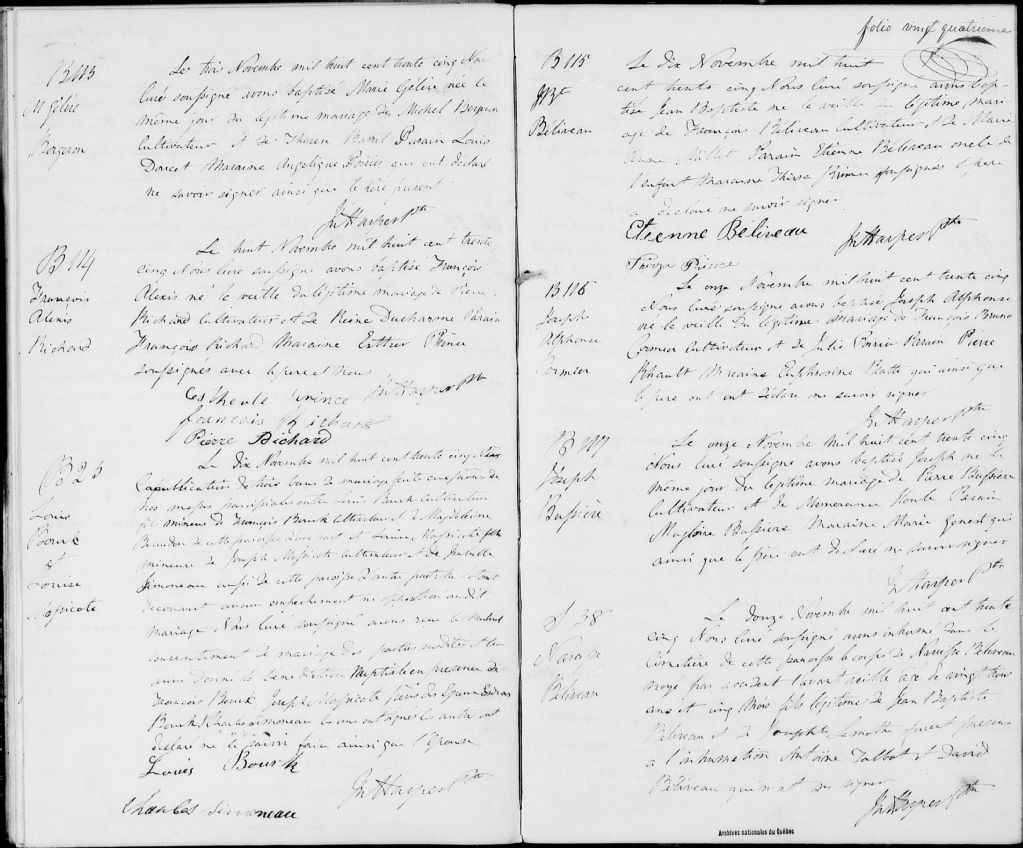 B 113
M Gélère
Bergeron
Le trois Novembre mil huit cent trente cinq Nous
Curé soussigné avons baptisé Marie Gélère née le
même jour du légitime mariage de Michel Bergeron
Cultivateur et de Parain Louis
Doucet Maraine Angelique Poirier qui ont déclaré
ne savoir signer ainsi que le père présent
Jn Harper Ptre
B 114
François
Alexis
Richard
Le huit Novembre mil huit cent trente
cinq Nous Curé soussigné avons baptisé François
Alexis né la veille du légitime mariage de Pierre
Richard Cultivateur et de Reine Ducharme Parain
François Richard Maraine Esther Prince
soussignés avec le pere et Nous
Prince Jn Harper Ptre
francois Richard
Pierre Richard
Louis
Bourk
et
Louise
Massicote
Le dix Novembre mil huit cent trente cinq
la publication de trois bans de mariage faite aux prônes de
nos messes paroissiales entre Louis Bourk Cultivateur
fils mineur de François Bourk Cultivateur et de Magdeleine
Beaudon de cette paroisse d'une part et Louise Massicote fille
mineure de Joseph Massicote Cultivateur et de
Simoneau aussi de cette paroisse d'autre part ne s'étant
découvert aucun empêchement ni opposition au dit
mariage Nous Curé soussigné avons reçu le mutuel
consentement de mariage des parties susdites et leur
avons donné la bénédiction Nuptiale en presence de
François Bourk Joseph Massicote pères des Epoux
Bourk Charles Simoneau les uns ont signés les autres ont
déclaré ne le savoir faire ainsi que l'Epouse
Louis Bourk
Jn Harper Ptre
Charles Simoneau
folio vingt quatrieme
B 115
Jn Bte
Béliveau
Le dix Novembre mil huit
cent trente cinq Nous Curé soussigné avons bap-
tisé Jean Baptiste né la veille du légitime mari-
age de François Béliveau Cultivateur et de Marie
Anne Millet Parain Etienne Béliveau oncle de
l'enfant Maraine Prince soussignés le pere
a déclaré ne savoir signer
Etienne Béliveau Jn Harper Ptre
Prince
B 116
Joseph
Alphonse
Cormier
Le onze Novembre mil huit cent trente cinq
Nous Curé soussigné avons baptisé Joseph Alphonse
né la veille du légitime mariage de François Bruno
Cormier Cultivateur et de Julie Poirier Parain Pierre
Rhault Maraine Euphrosine qui ainsi que
le pere ont déclaré ne savoir signer
Jn Harper Ptre
B 117
Joseph
Bussière
Le onze Novembre mil huit cent trente cinq
Nous Curé soussigné avons baptisé Joseph né le
même jour du légitime mariage de Pierre Bussière
Cultivateur et de Houle Parain
Magloire Bussiere Maraine Marie Genest qui
ainsi que le père ont déclaré ne savoir signer
Jn Harper Ptre
S 38
Narcisse
Béliveau
Le douze Novembre mil huit cent trente
cinq Nous Curé soussigné avons inhumé dans le
Cimetiere de cette paroisse le corps de Narcisse Béliveau
noyé par accident l'avant veille agé de vingt trois
ans et cinq mois fils légitime de Jean Baptiste
Béliveau et de Josephte Lamothe furent presens
à l'inhumation Antoine Talbot et David
Béliveau qui n'ont su signer
Jn Harper Ptre
Archives nationales du Québec